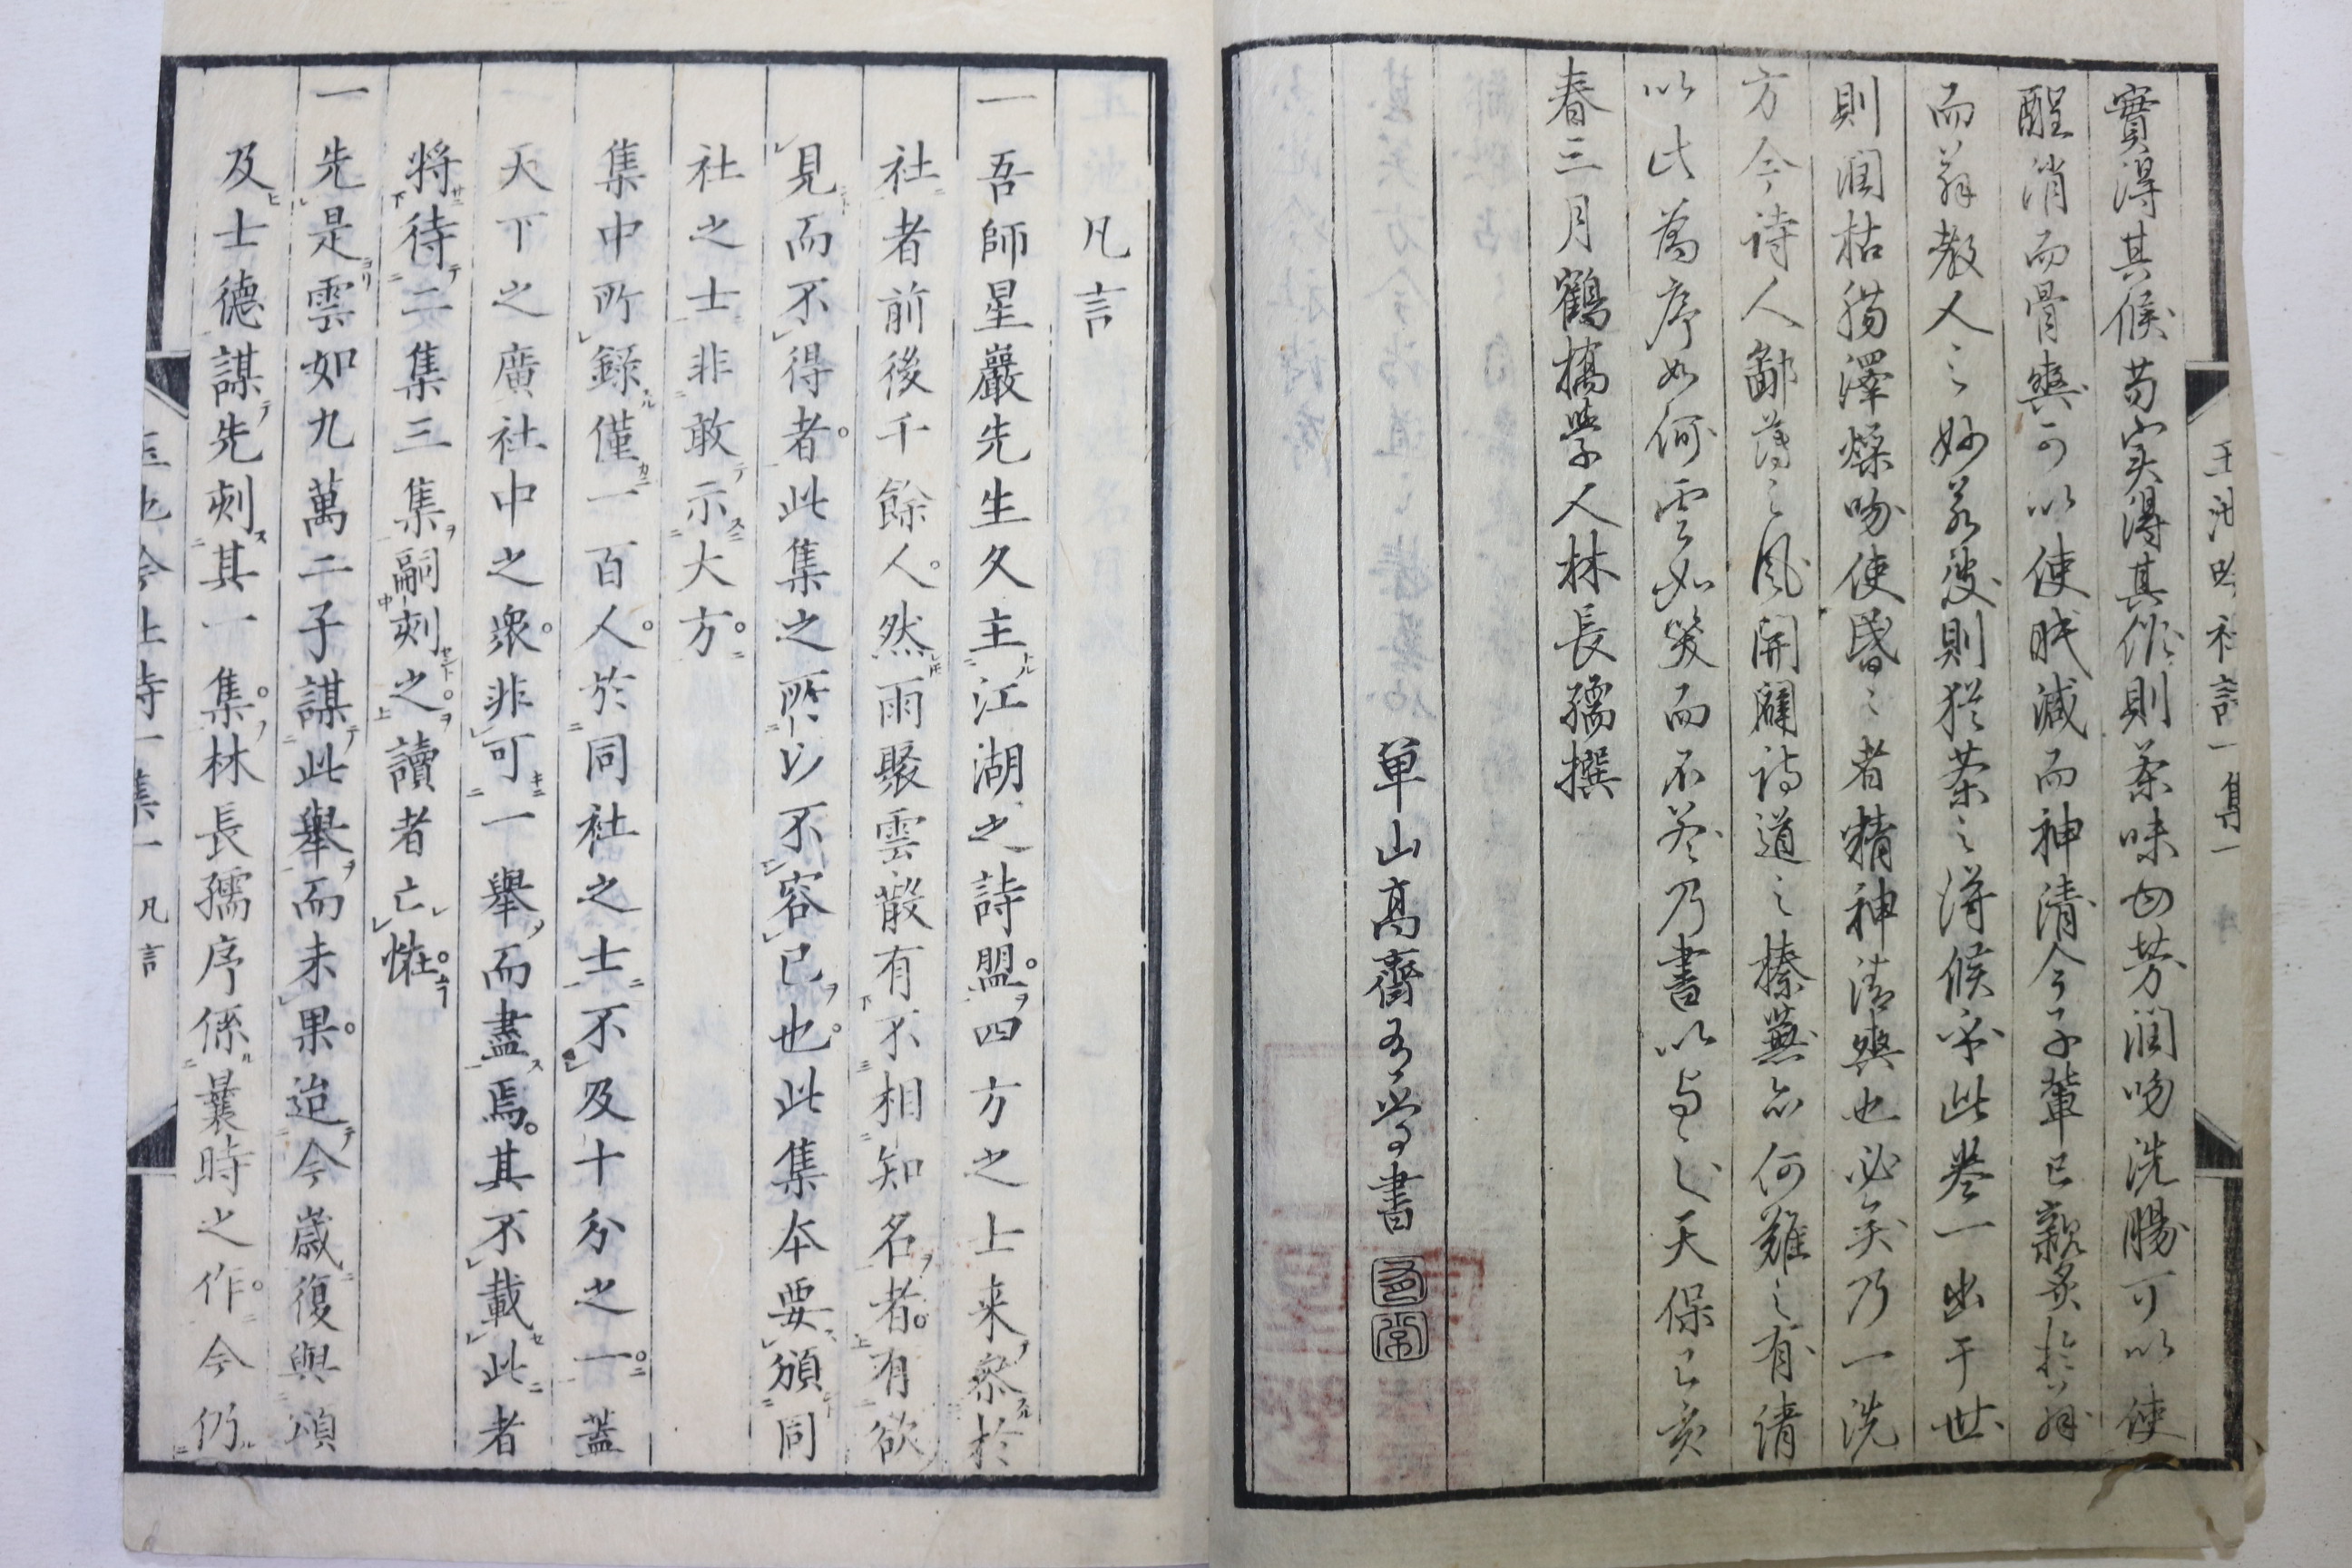 實得其候苟實得其候則茶味甘芳潤吻洗腸可以使
酲消而骨爽可以使眠減而神清今子輩已親炙於翁
而翁教人之妙若彼則猶茶之得候乎此卷一出于世
則潤枯腸澤燥吻使昏昏者精神清爽也必矣乃一洗
方今詩人鄙薄之風開闢詩道之榛蕪亦何難之有請
以此為序如何雲如笑而不答乃書以与之天保己亥
春三月鶴橋學人林長孺撰
單山高齋有常書
凡言
一吾師星巖先生久主江湖之詩盟四方之士来參於
社者前後千餘人然雨聚雲散有不相知名者有欲
見而不得者此集之所以不容已也此集本要頒同
社之士非敢示大方
集中所錄僅一百人於同社之士不及十分之一蓋
天下之廣社中之衆非可一舉而盡焉其不載此者
将待二集三集嗣刻之讀者亡恠
一先是雲如九萬二子謀此舉而未果迨今歲復與頌
及士德謀先刻其一集林長孺序係曩時之作今仍
凡言